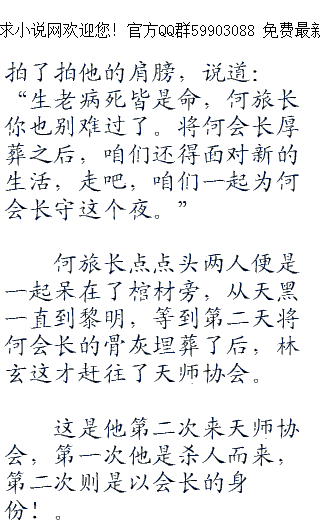 求小说网欢迎您！官方QQ群59903088 免费最新
拍了拍他的肩膀，说道：
“生老病死皆是命，何旅长
你也别难过了。将何会长厚
葬之后，咱们还得面对新的
生活，走吧，咱们一起为何
会长守这个夜。”
何旅长点点头两人便是
一起呆在了棺材旁，从天黑
一直到黎明，等到第二天将
何会长的骨灰埋葬了后，林
玄这才赶往了天师协会。
这是他第二次来天师协
会，第一次他是杀人而来，
第二次则是以会长的身
份！。